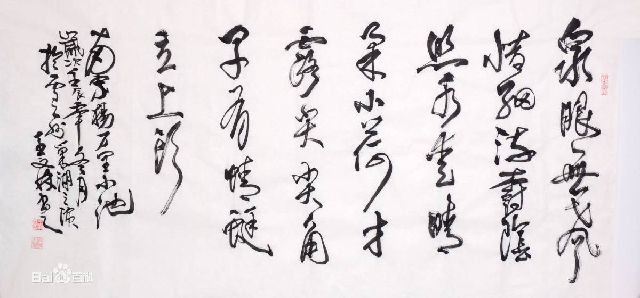 泉眼無聲
惜細流樹陰
照水愛晴
柔小荷才
露尖尖角
早有蜻蜓
立上頭
南宋楊万里小池
歲次壬辰年冬月
湖之濱
書之
Bai百科